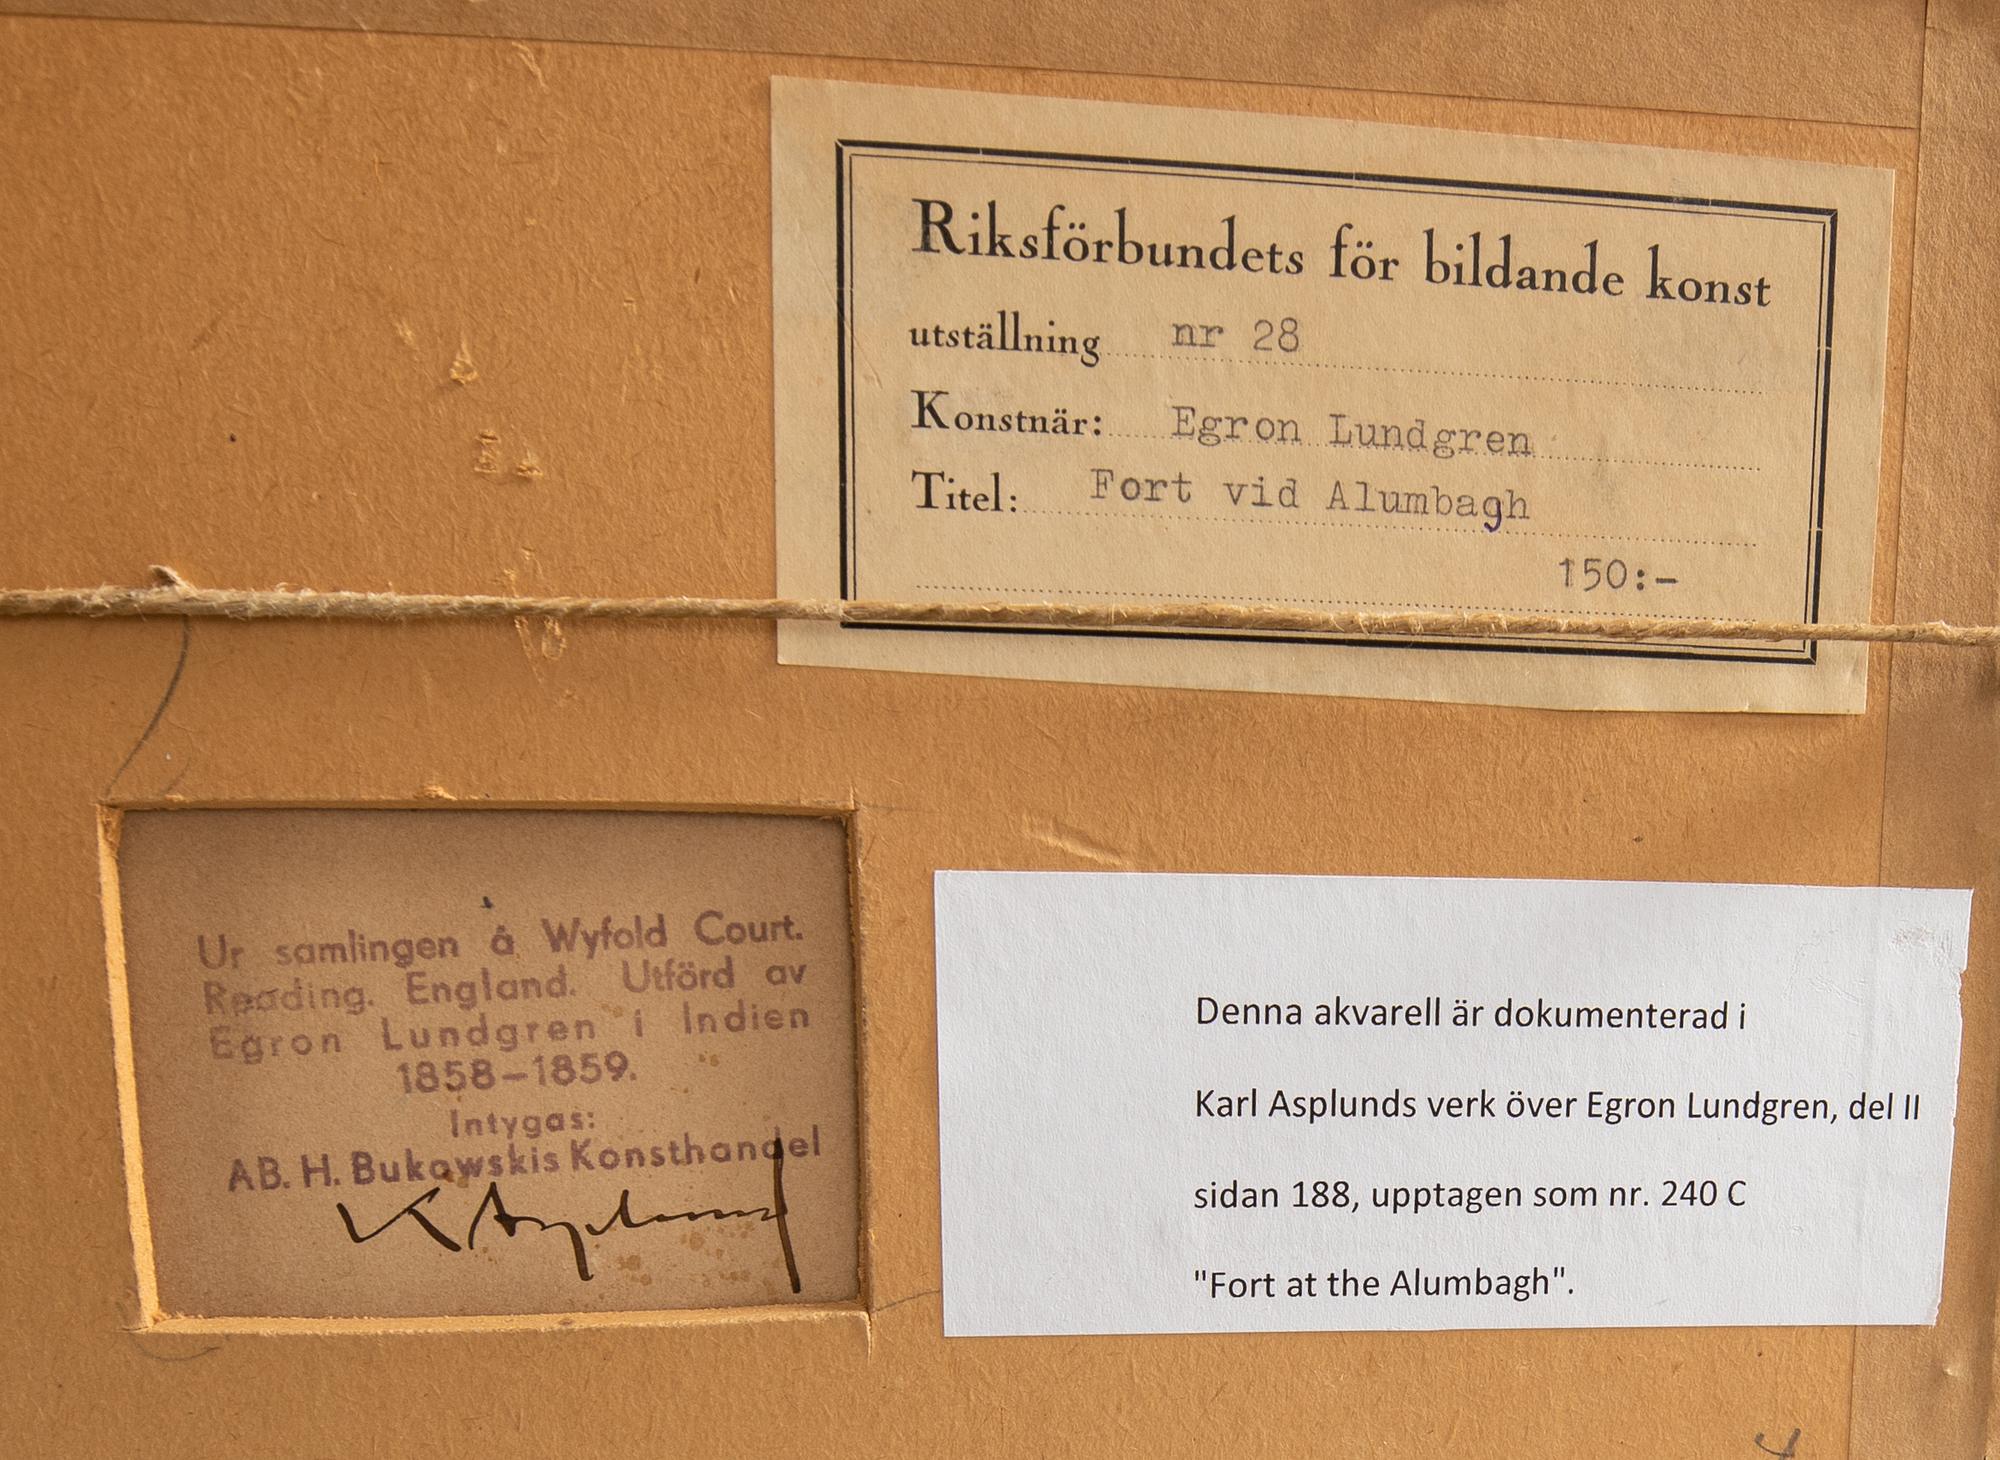 Riksförbundets för bildande konst
utställning nr 28
Konstnär: Egron Lundgren
Titel: Fort vid Alumbagh
150:-
Ur samlingen å Wyfold Court.
Reading. England. Utförd av
Egron Lundgren i Indien
1858–1859.
Intygas:
AB. H. Bukowskis Konsthandel
K Asplund
Denna akvarell är dokumenterad i
Karl Asplunds verk över Egron Lundgren, del II
sidan 188, upptagen som nr. 240 C
"Fort at the Alumbagh".